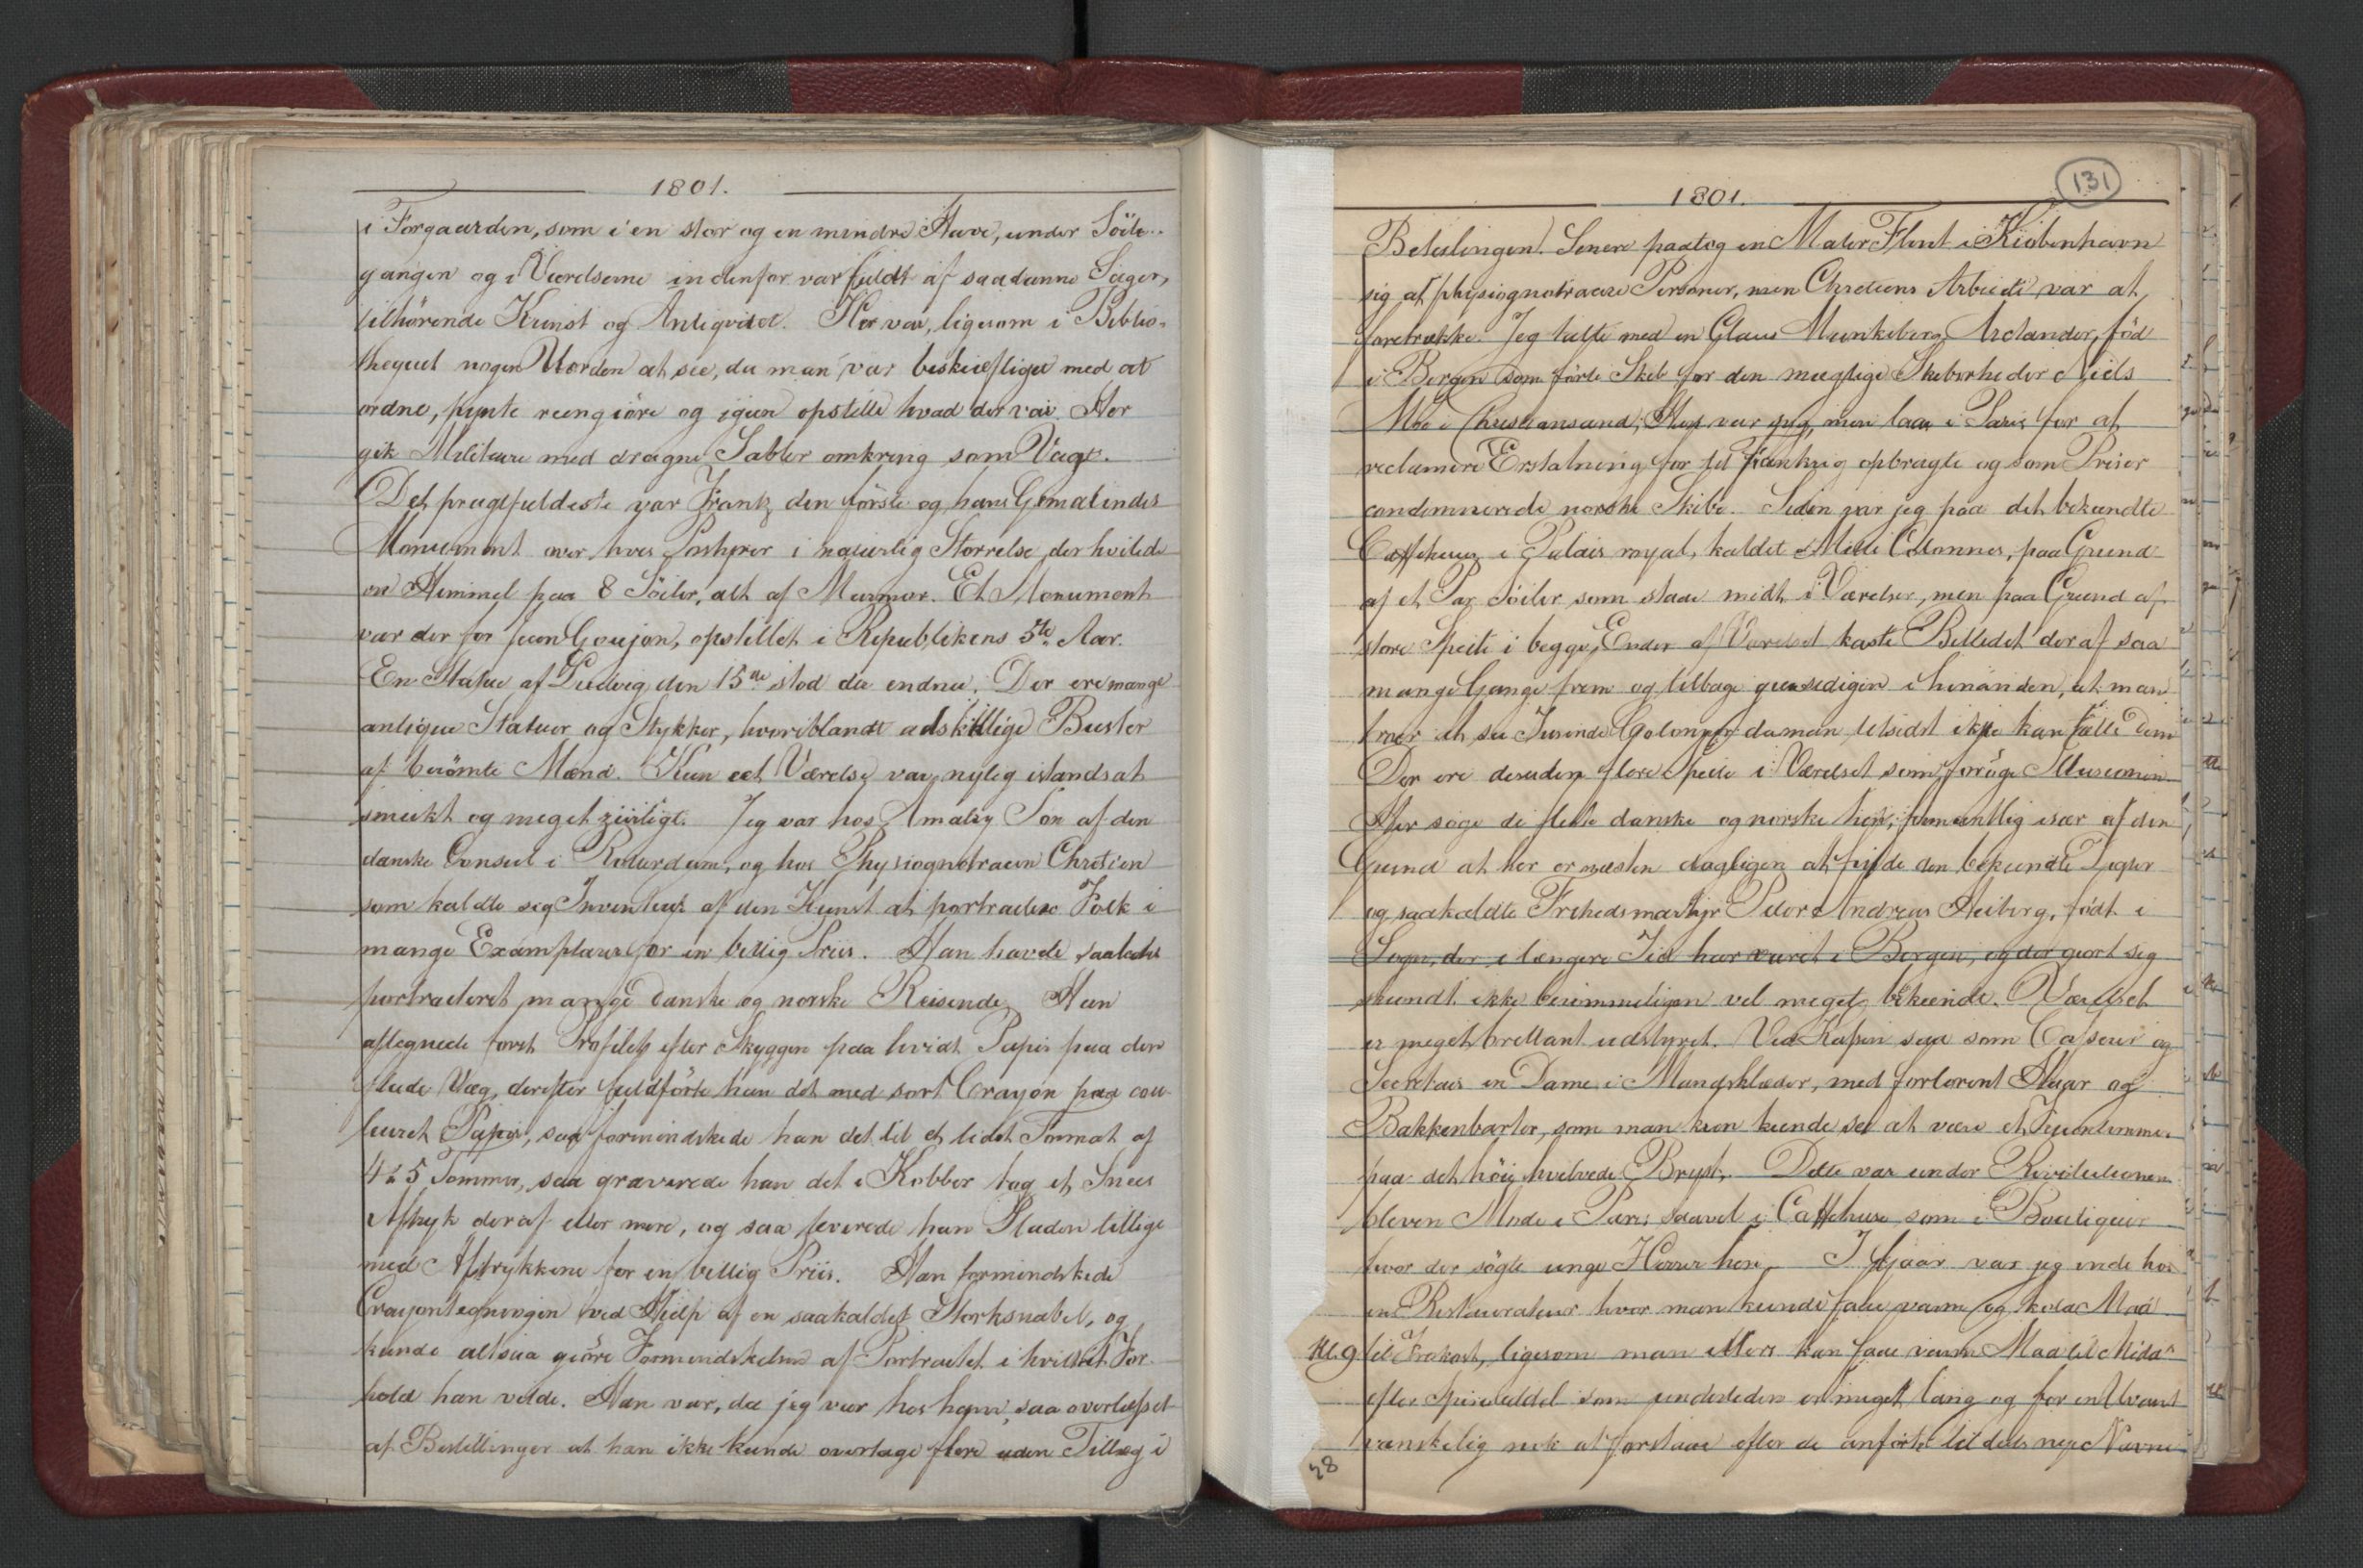 1801.
i Forgaarden, som i en stor og en mindre Have, under Söile-
gangen og i Værelserne indenfor var fuldt af saadanne Sager,
tilhörende Kunst og Antiqvitet. Her var, ligesom i Biblio-
theqvet nogen Uorden at see, da man var beskiæftiget med at
ordne, pynte reengiöre og igien opstille hvad der var. Her
gik Militaire med dragne Sabler omkring som Vagt.
Det pragtfuldeste var Frantz den förste og hans Gemalindes
Monument over hvis Postyrer i naturlig Störrelse der hvilede
en Himmel paa 8 Söiler, alt af Marmor. Et Monument
var der for Jean Goujon, opstillet i Republikens 5te Aar.
En Statue af Ludvig den 15de stod da endnu. Der ere mange
antique Statuer og Stykker, hvoriblandt adskillige Buster
af berömte Mænd. Kun eet Værelse var nylig istandsat
smukt og meget ziirligt. Jeg var hos Amalry Sön af den
danske Consul i Roterdam, og hos Physiognotracen Chretien
som kaldte sig Inventeur af den Kunst at portraitere Folk i
mange Examplarer for en billig Priis. Han havde saaledes
portraiteret mange danske og norske Reisende. Han
aftegnede först Profilet efter Skyggen paa hvidt Papir paa den
flade Væg, derefter fuldförte han det med sort Crayon paa cou-
leuret Papir, saa formindskede han det til et lidet Format af
4 à 5 Tommer, saa graverede han det i Kobber tog et Snees
Aftryk deraf eller mere, og saa leverede han Pladen tillige
med Aftrykkene for en billig Priis. Han formindskede
Crayontegningen ved Hielp af en saakaldet Storksnabel, og
kunde altsaa giöre Formindskelsen af Portraitet i hvilket For-
hold han vilde. Han var, da jeg var hos ham, saa overlæsset
af Bestillinger at han ikke kunde overtage flere uden Tillæg i
131
1801.
Betalingen. Senere paatog en Maler Flint i Kiöbenhavn
sig at physiognotracere Personer, men Chretiens Arbeide var at
foretrække. Jeg talte med en Claus Munkeberg Arctander, föd
i Bergen som förte Skib for den mægtige Skibsrheder Niels
Moe i Christiansand; Han var syg, men laae i Paris for at
reclamere Erstatning for til Frankrig opbragte og som Priser
condemnerede norske Skibe. Siden var jeg paa det bekiendte
Caffehuus i Palais royal, kaldet Mille Colonnes, paa Grund
af et Par Söiler som staae midt i Værelset, men paa Grund af
store Speile i begge Ender af Værelset kaste Billedet deraf saa
mange Gange frem og tilbage giensidigen i hinanden, at man
troer at see Tusinde Colonner da man tilsidst ikke kan tælle dem
Der ere desuden flere Speile i Værelset som foröge Illusionen
Her söge de fleste danske og norske hen, formentlig især af den
Grund at her er næsten dagligen at finde den bekiendte Digter
og saakaldte Frihedsmartyr Peter Andreas Heiberg, födt i
Sogn, der i længere Tid har været i Bergen, og der giort sig
skiöndt ikke berömmeligen vel meget bekiendt. Værelset
er meget brillant udstyret. Ved Kassen sad som Casseur og
Secretair en Dame i Mandsklæder, med forlorent Haar og
Bakkenbarter, som man kun kunde see at være et Fruentimmer
paa det höie hvelvede Bryst. Dette var under Revolutionen
bleven Mode i Paris saavel i Caffehuse som i Boutiquer
hvor der sögte unge Herrer hen. I Gaar var jeg inde hos
en Restaurateur hvor man kunde faae varm og kold Mad
Kl. 9 til Frokost, ligesom man ellers kan faae varm Mad til Middag
efter Spiseseddel som undertiden er meget lang og for en Uvant
vanskelig nok at forstaae efter de anförte tildeels nye Navne
28